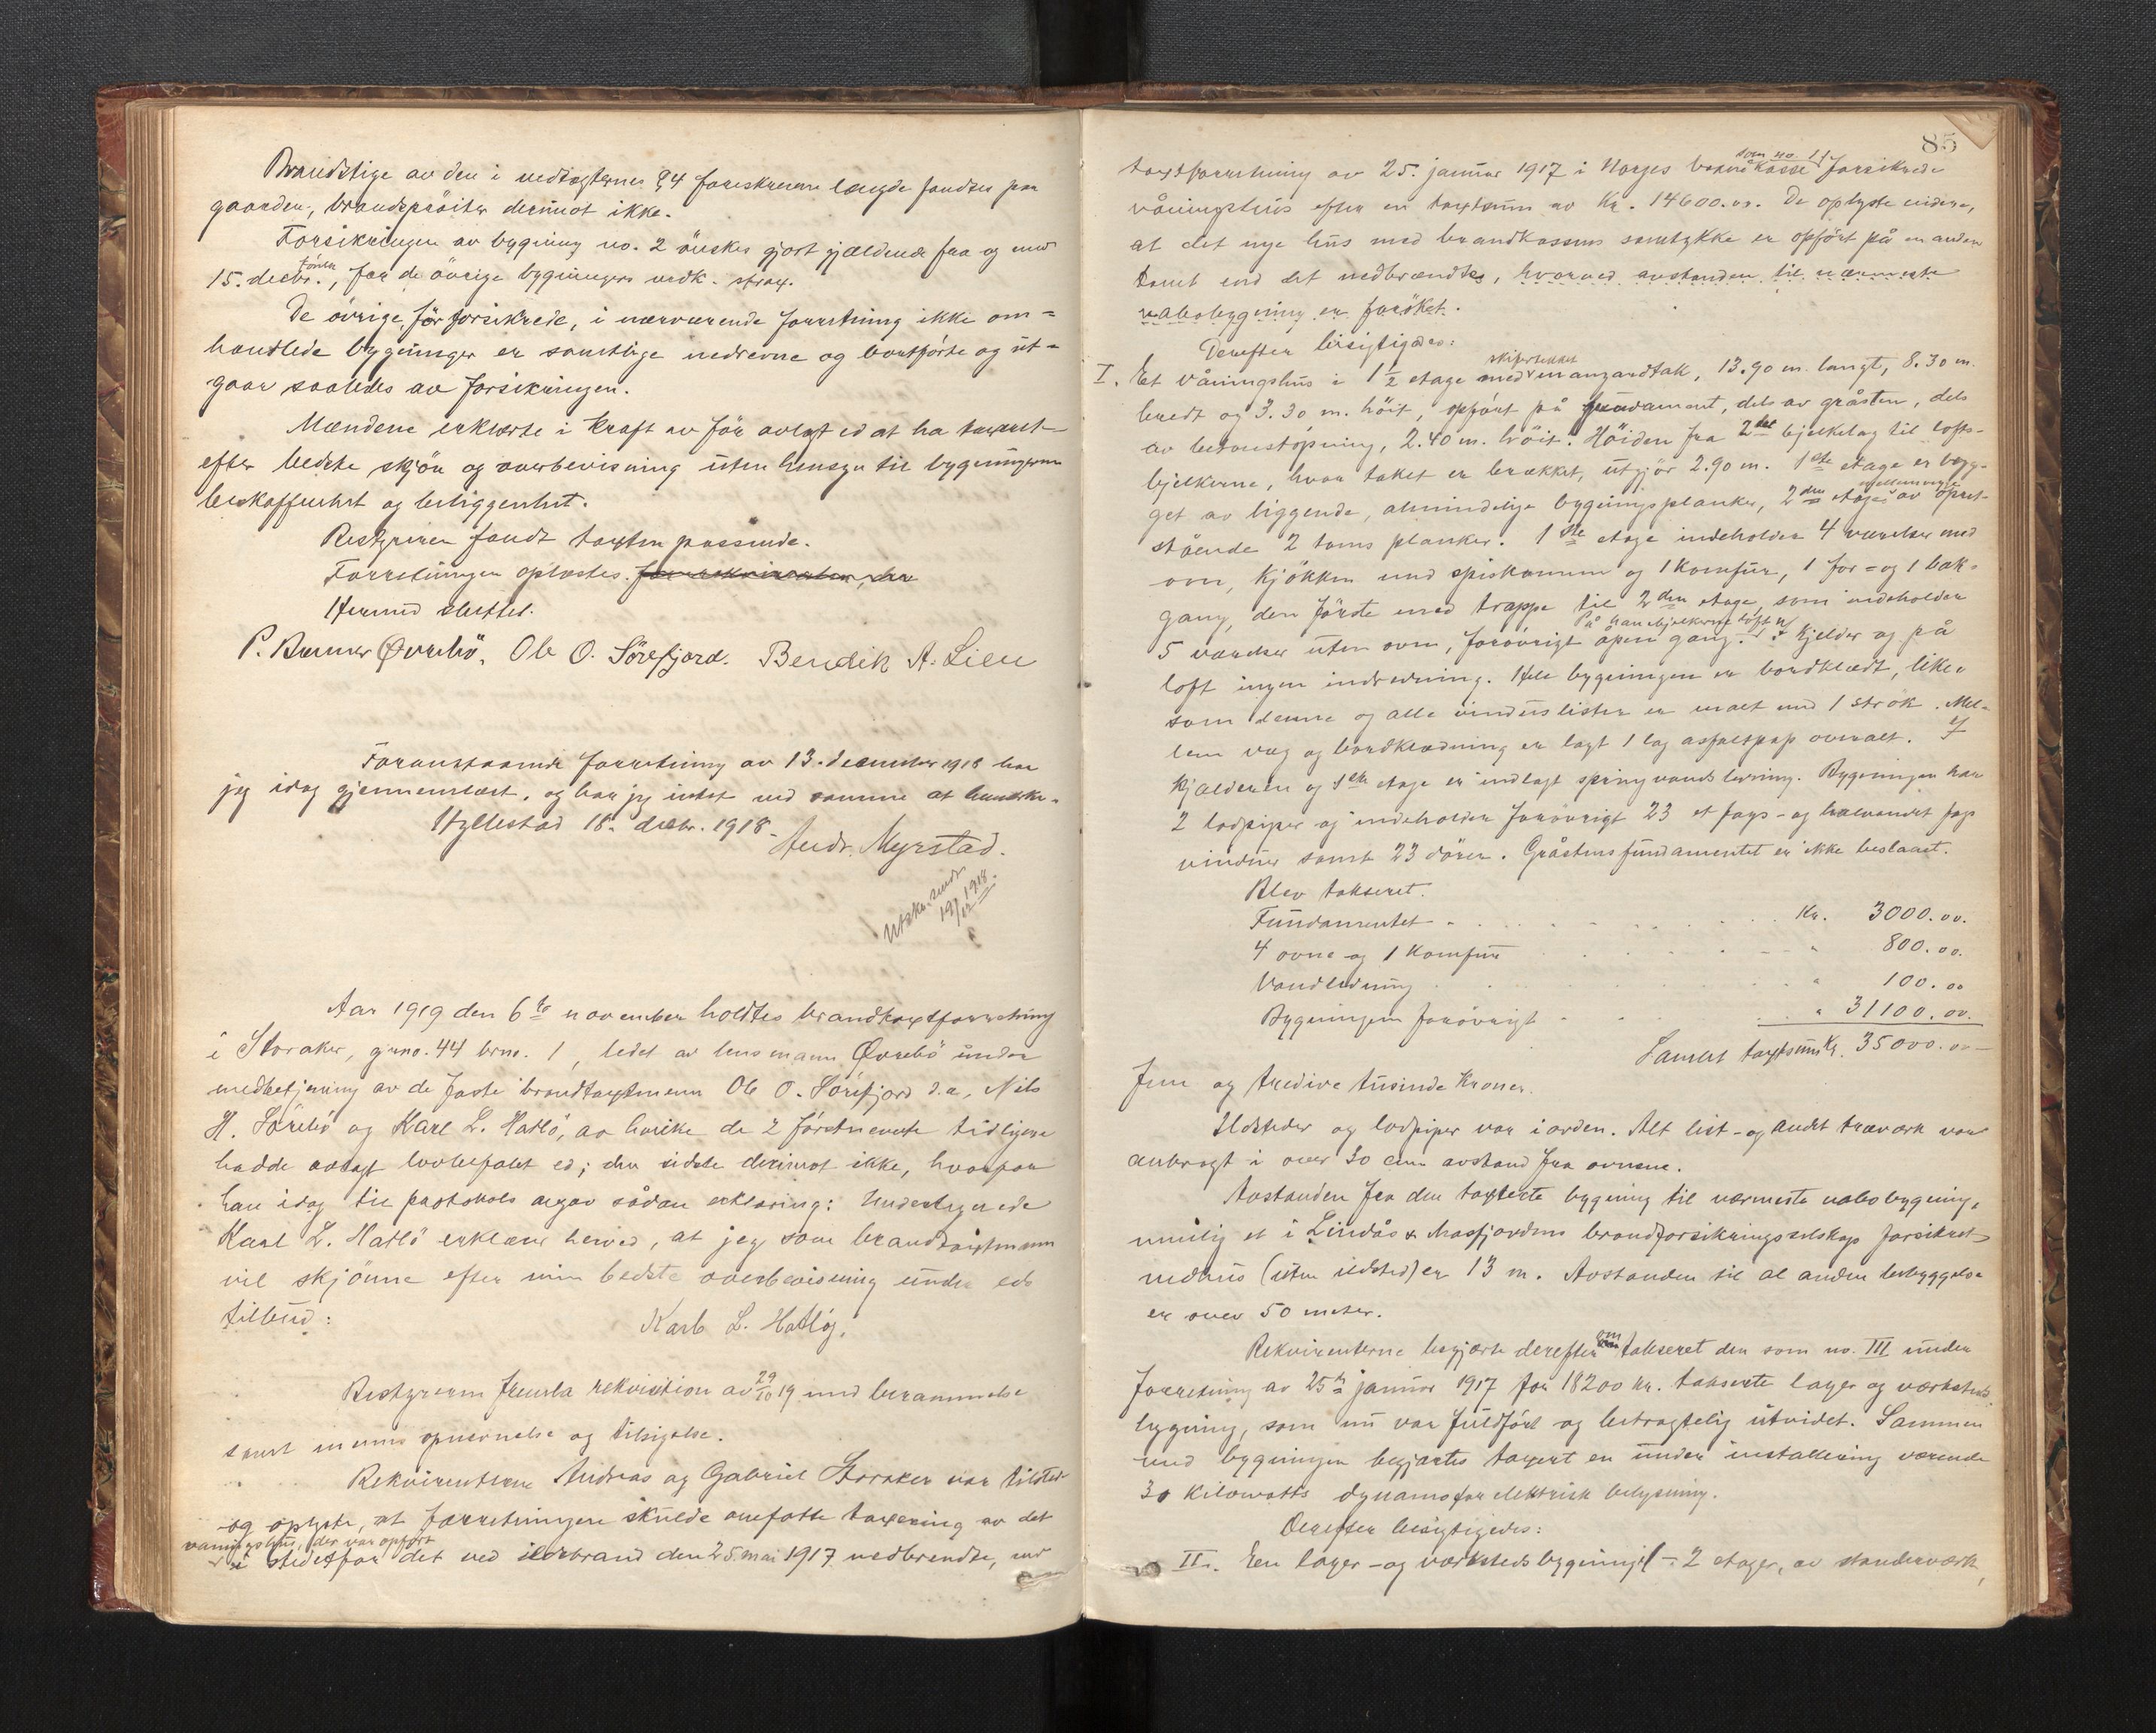 Brandstige av den i vedtægternes §4 foreskrevne længde fandtes paa
gaarden, brandsprøiter derimot ikke.
Forsikringen av bygning no. 2 ønskes gjort gjældende fra og med
15. decbr. førstk., for de øvrige bygningers vedk. strax.
De øvrige, før forsikrede, i nærværende forretning ikke om-
handlede bygninger er samtlige nedrevne og bortførte og ut-
gaar saaledes av forsikringen.
Mændene erklærte i kraft av før avlagt ed at ha taxeret
efter bedste skjøn og overbevisning uten hensyn til bygningernes
beskaffenhet og beliggenhet.
Bestyreren fandt taxten passende.
Forretningen oplæstes.
Hermed sluttet.
P. Brunner Øvrebø. Ole O. Sörefjord. Bendik A. Lien
Foranstaaende forretning av 13. december 1918 har
jeg idag gjennemlæst, og har jeg intet ved samme at bemerke.
Hyllestad 18. decbr. 1918.
Andr. Myrstad.
Utskr. sendt
19/12 1918.
Aar 1919 den 6te november holdtes brandtaxtforretning
i Storaker, gno. 44 brno. 1, ledet av lensmann Øvrebö under
medbetjening av de faste brandtaxtmenn Ole O. Sörefjord d.æ., Nils
H. Sörebö og Karl L. Hatlö, av hvilke de 2 förstnevnte tidligere
hadde avlagt lovbefalet ed; den sidste derimot ikke, hvorfor
han idag til protokols avgav sådan erklæring: Undertegnede
Karl L. Hatlö erklærer herved, at jeg som brandtaxtmann
vil skjönne efter min bedste overbevisning under eds
tilbud:
Karl L. Hatlöy.
Bestyreren fremla rekvisition av 29/10 19 med berammelse
samt menns opnevnelse og tilsigelse.
Rekvirenterne Andreas og Gabriel Storaker var tilstede
og oplyste, at forretningen skulde omfatte taxering av det
våningshus, der var opfört
i stedet for det ved ildebrand den 25. mai 1917 nedbrendte, ved
85
taxtforretning av 25. januar 1917 i Norges brannkasse som no. 11 forsikrede
våningshus efter en taxtsum av Kr. 14600.00. De oplyste videre,
at det nye hus med brandkassens samtykke er opfört på en anden
tomt end det nedbrændtes, hvorved avstanden til nærmeste
nabobygning er foröket.
Derefter besigtigedes:
I. Et våningshus i 1 1/2 etage med skifertækket manzardtak, 13.90 m. langt, 8.30 m.
bredt og 3.30 m. höit, opfört på fundament, dels av gråsten, dels
av betonstöpning, 2.40 m. höit. Höiden fra 2det bjelkelag til lofts-
bjelkerne, hvor taket er brækket, utgjör 2.90 m. 1ste etage er byg-
get av liggende, almindelige bygningsplanker, 2den etages av opret-
stående 2 toms planker. 1ste etage indeholder 4 værelser med
ovn, kjökken med spiskammer og 1 komfur, 1 for- og 1 bak-
gang, den förste med trappe til 2den etage, som indeholder
5 værelser uten ovn, forövrigt åpen gang. På hanebjelkerne loft. I kjelder og på
loft ingen indredning. Hele bygningen er bordklædt, like-
som denne og alle vinduslister er malt med 1 strök. Mel-
lem væg og bordklædning er lagt 1 lag asfaltpap overalt. I
kjælderen og 1ste etage er indlagt springvandsledning. Bygningen har
2 lodpiper og indeholder forövrigt 23 et fags- og halvandet fags
vinduer samt 23 dörer. Gråstensfundamentet er ikke beslaaet.
Blev takseret.
Fundamentet . . . . Kr. 3000.00.
4 ovne og 1 komfur . . . . " 800.00.
Vandledning . . . . " 100.00
Bygningen forövrigt . . . . " 31100.00.
Samlet taxtsum Kr. 35000.00
Fem og tredive tusinde Kroner.
Ildsteder og lodpiper var i orden. Alt list- og andet træværk var
anbragt i over 30 cm. avstand fra ovnene.
Avstanden fra den taxterte bygning til nærmeste nabobygning,
nemlig et i Lindås & Masfjordens brandforsikringsselskap forsikret
vedhus (uten ildsted) er 13 m. Avstanden til al anden bebyggelse
er over 50 meter.
Rekvirenterne begjærte derefter omtakseret den som no. III under
forretning av 25de januar 1917 for 18200 kr. takserte lager og værksteds
bygning, som nu var fuldfört og betragtelig utvidet. Sammen
med bygningen begjærtes taxert en under installering værende
30 kilowatts dynamo for elektrisk belysning.
Derefter besigtigedes:
II. En lager- og værkstedsbygning i 2 etager, av standerværk,